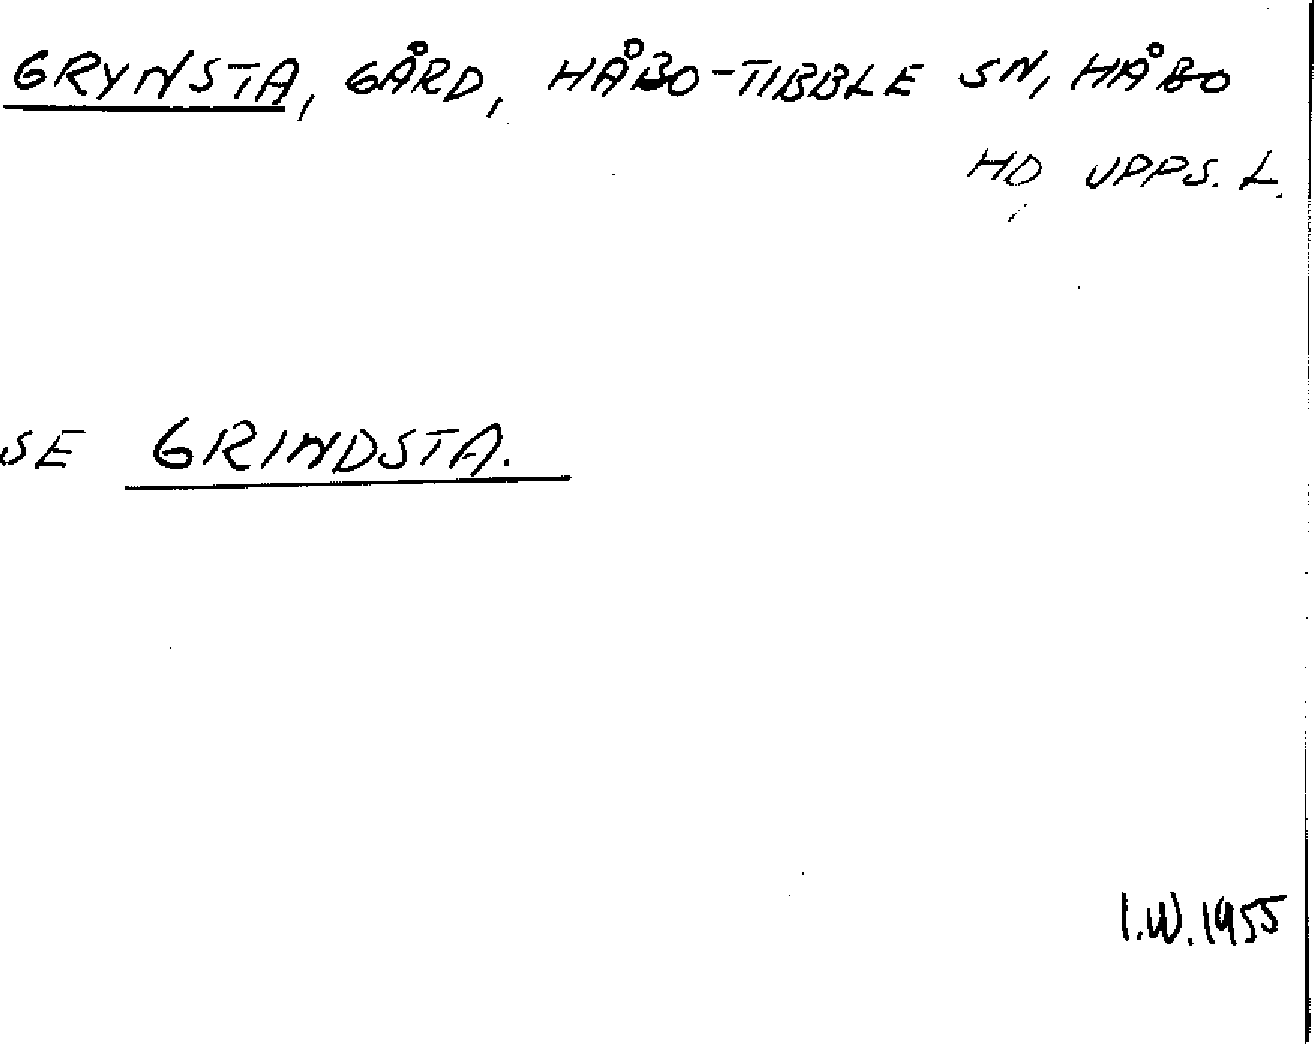 GRYNSTA, GÅRD, HÅBO-TIBBLE SN, HÅBO
HD UPPS. L.
SE GRINDSTA.
I.W. 1955